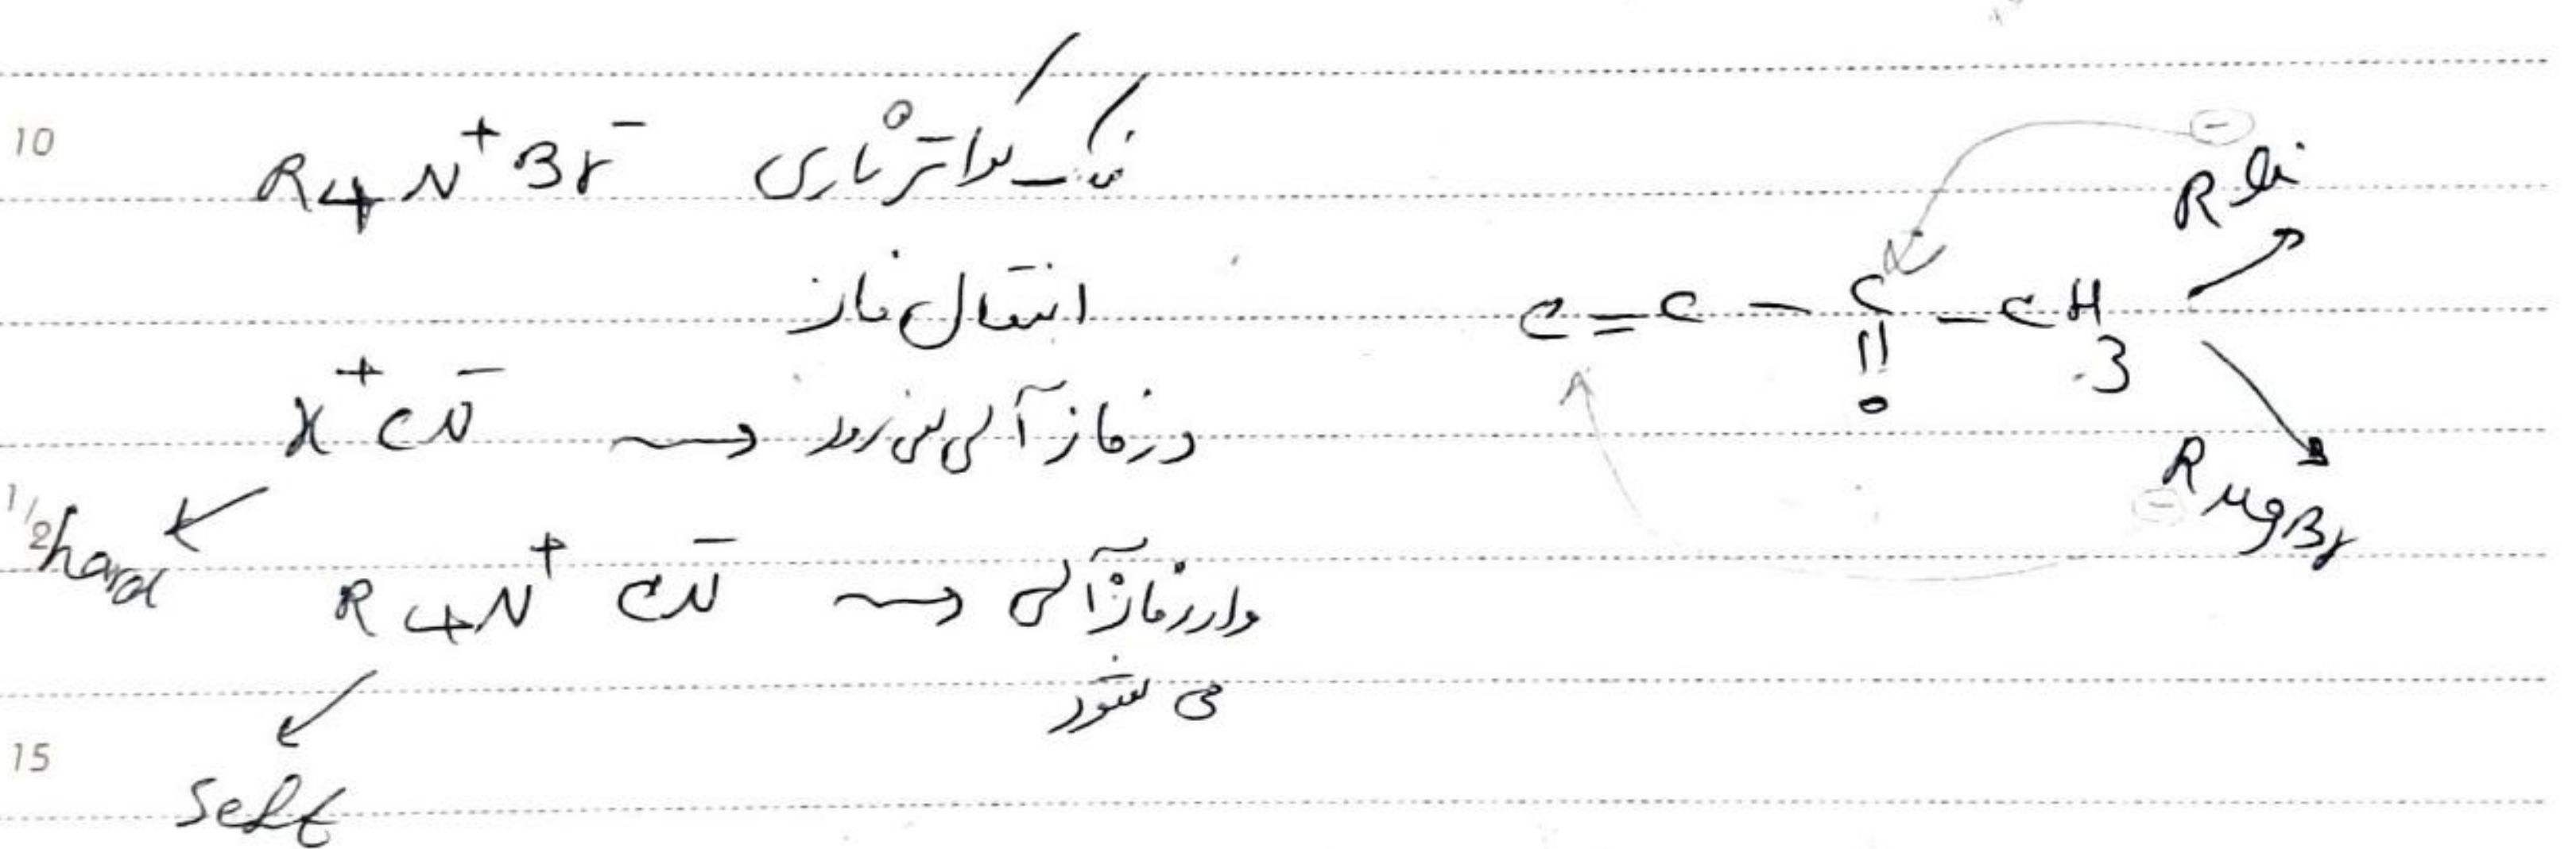 10
R4N+ Br- نمک کواترناری
انتقال فاز
X+ CN- → در فاز آلی نمی رود
1/2
hard
R4N+ CN- → وارد فاز آلی
می شود
15
Soft
- R Li
C = C - C - CH3
|| O
- R MgBr